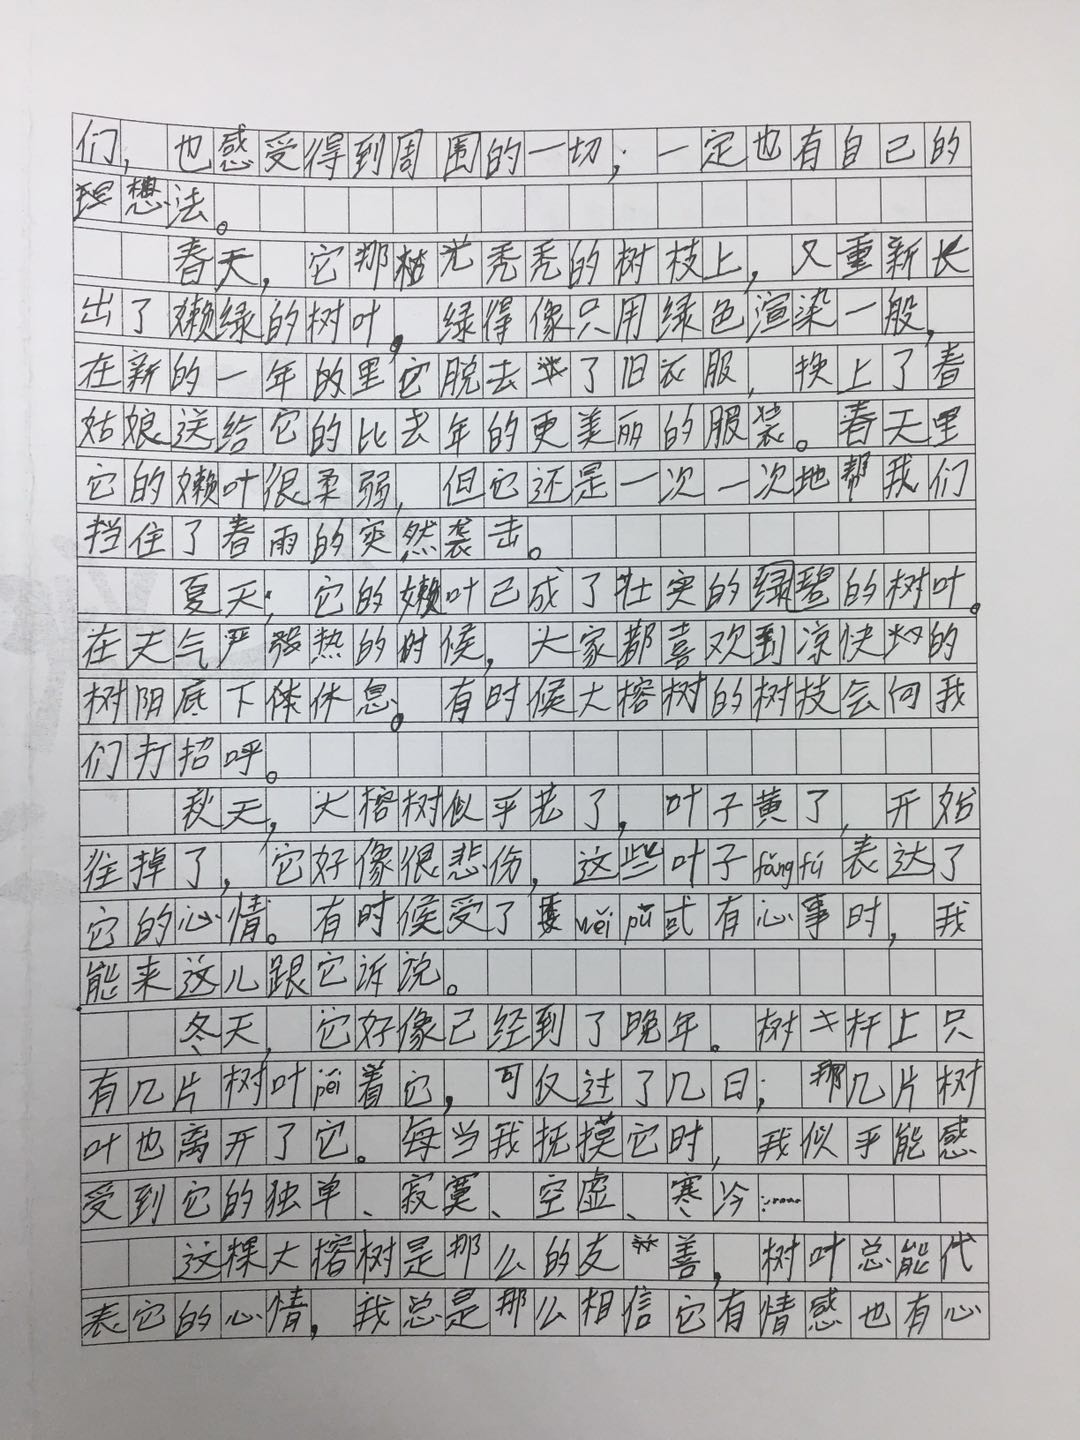 们，也感受得到周围的一切；一定也有自己的
想法。
春天，它那光秃秃的树枝上，又重新长
出了嫩绿的树叶，绿得像只用绿色渲染一般，
在新的一年的里它脱去了旧衣服，换上了春
姑娘送给它的比去年的更美丽的服装。春天里
它的嫩叶很柔弱，但它还是一次一次地帮我们
挡住了春雨的突然袭击。
夏天，它的嫩叶已成了壮实的绿碧的树叶。
在天气严热的时候，大家都喜欢到凉快的
树阴底下休息。有时候大榕树的树技会向我
们打招呼。
秋天，大榕树似乎老了，叶子黄了，开始
往掉了，它好像很悲伤，这些叶子fǎng fú表达了
它的心情。有时候受了wěi pū或有心事时，我
能来这儿跟它诉说。
冬天，它好像已经到了晚年。树杆上只
有几片树叶péi着它，可仅过了几日；那几片树
叶也离开了它。每当我抚摸它时，我似乎能感
受到它的独单、寂寞、空虚、寒冷……
这棵大榕树是那么的友善，树叶总能代
表它的心情，我总是那么相信它有情感也有心